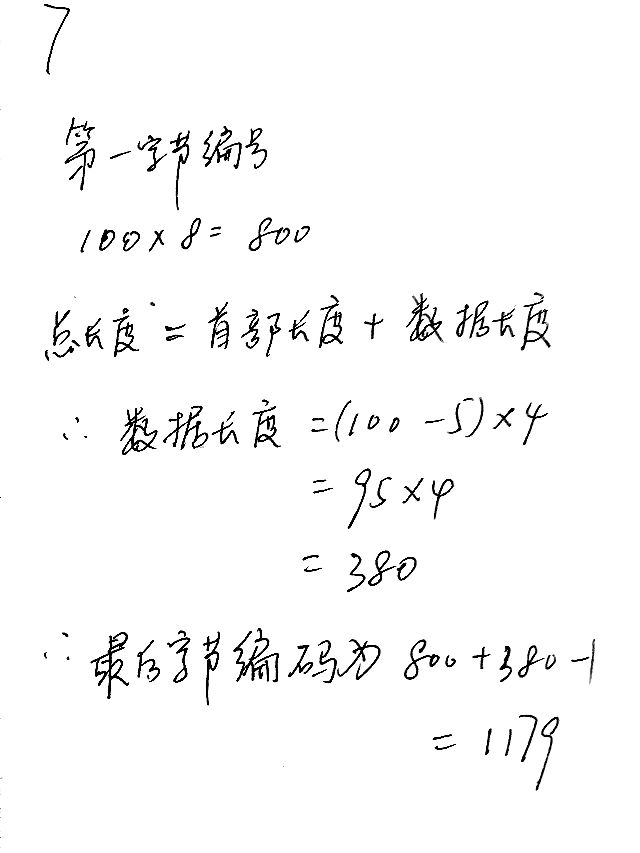 7
第一字节编号
100×8=800
总长度=首部长度+数据长度
∴数据长度=(100-5)×4
=95×4
=380
∴最后字节编码为800+380-1
=1179